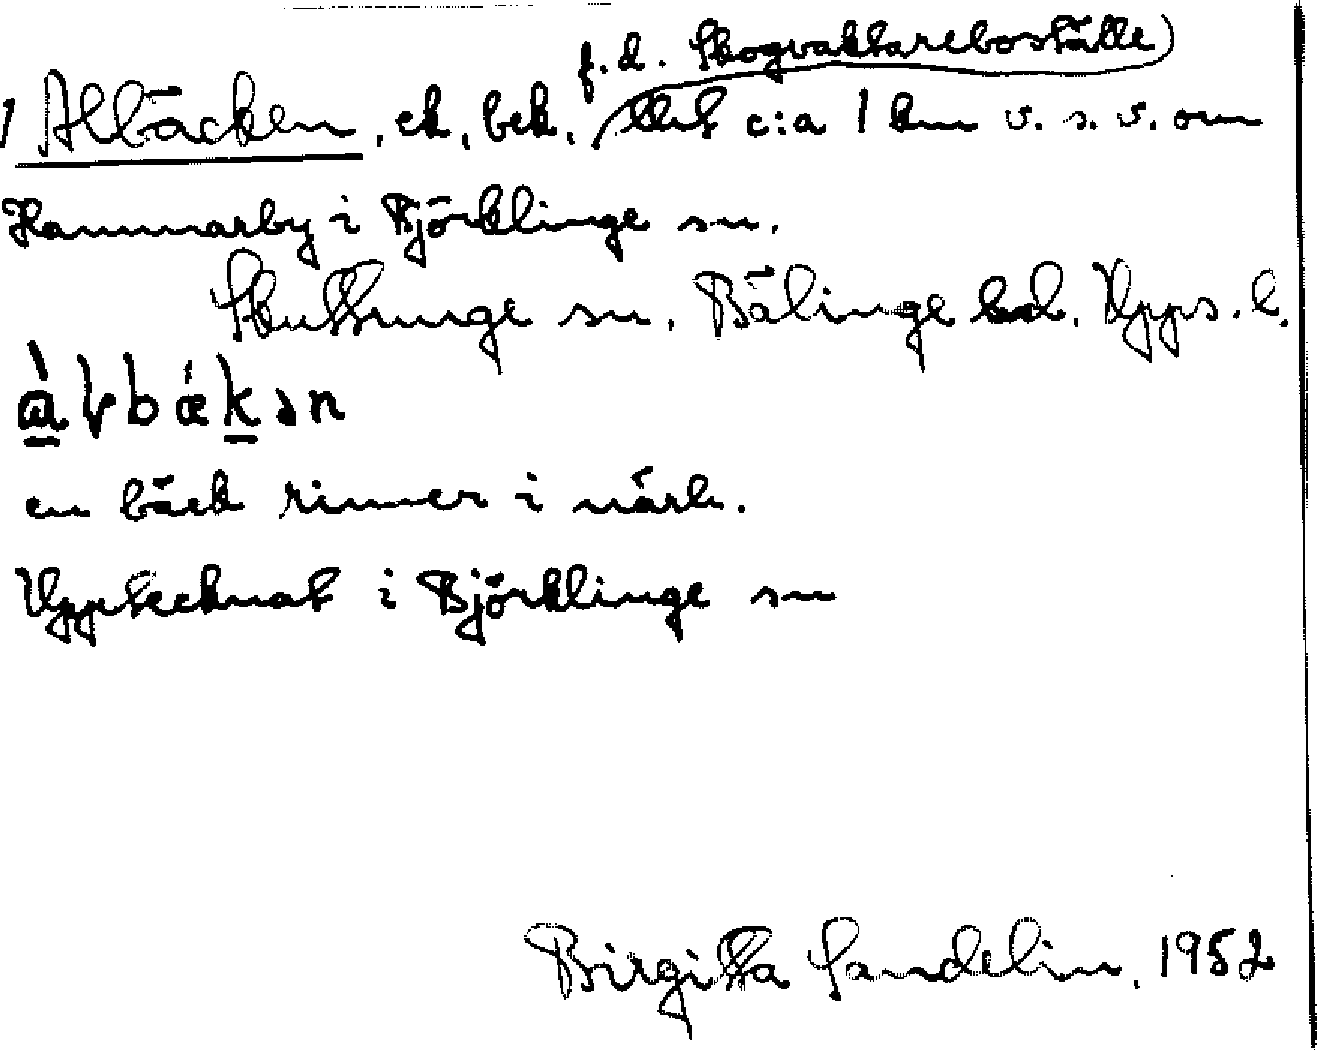 f.d. Skogvaktareboställe
1 Albäcken, ek, bek, c:a 1 km v.s.v. om
Hammarby i Björklinge sn.
Skuttunge sn. Bälinge hd. Upps. l.
en bäck rinner i närh.
Upptecknat i Björklinge sn
Birgitta Sandelin, 1952